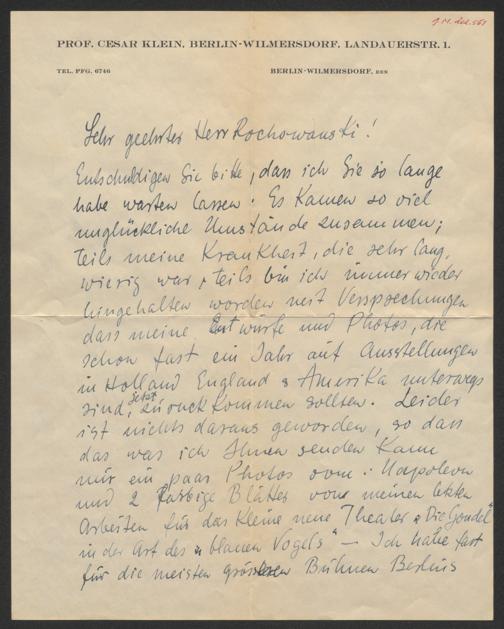 PROF. CESAR KLEIN, BERLIN-WILMERSDORF, LANDAUERSTR. 1.
TEL. PFG. 6746 BERLIN-WILMERSDORF, DEN
Sehr geehrter Herr Rochowanski!
Entschuldigen Sie bitte, dass ich Sie so lange
habe warten lassen. Es kamen so viel
unglückliche Umstände zusammen;
teils meine Krankheit, die sehr lang,
wierig war, teils bin ich immer wieder
hingehalten worden mit Versprechungen
dass meine Entwürfe und Photos, die
schon fast ein Jahr auf Ausstellungen
in Holland England & Amerika unterwegs
sind, jetzt zurückkommen sollten. Leider
ist nichts daraus geworden, so dass
das was ich Ihnen senden kann
nur ein paar Photos vom: Napoleon
und 2 farbige Blätter von meinen letzten
Arbeiten für das kleine neue Theater „Die Gondel"
in der Art des „blauen Vogels" — Ich habe fast
für die meisten grösseren Bühnen Berlins